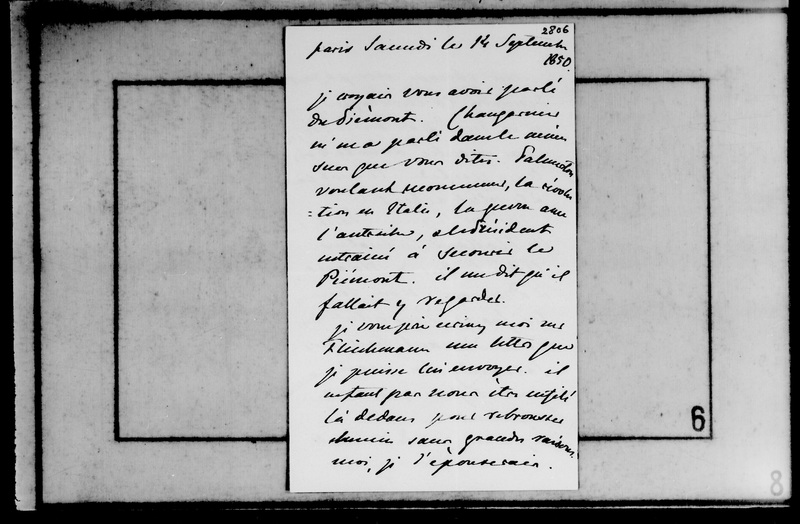 2806
paris Samedi le 14 Septembre
1850.
je croyais vous avoir parlé
du Piémont. Changarnier
m'en a parlé dans le même
sens que vous dites. Palmerston
voulant recommencer, la révolu
=tion en Italie, la guerre avec
l'autriche, et le Président
entrainé à secourir le
Piémont. il me dit qu'il
fallait y regarder.
je vous prie écrivez moi sur
Fleischmann une lettre que
je puisse lui envoyer. il
ne faut pas nous être mêlé
là dedans pour rebrousser
chemin sans grandes raisons.
moi, je l'épouserais.
6
8